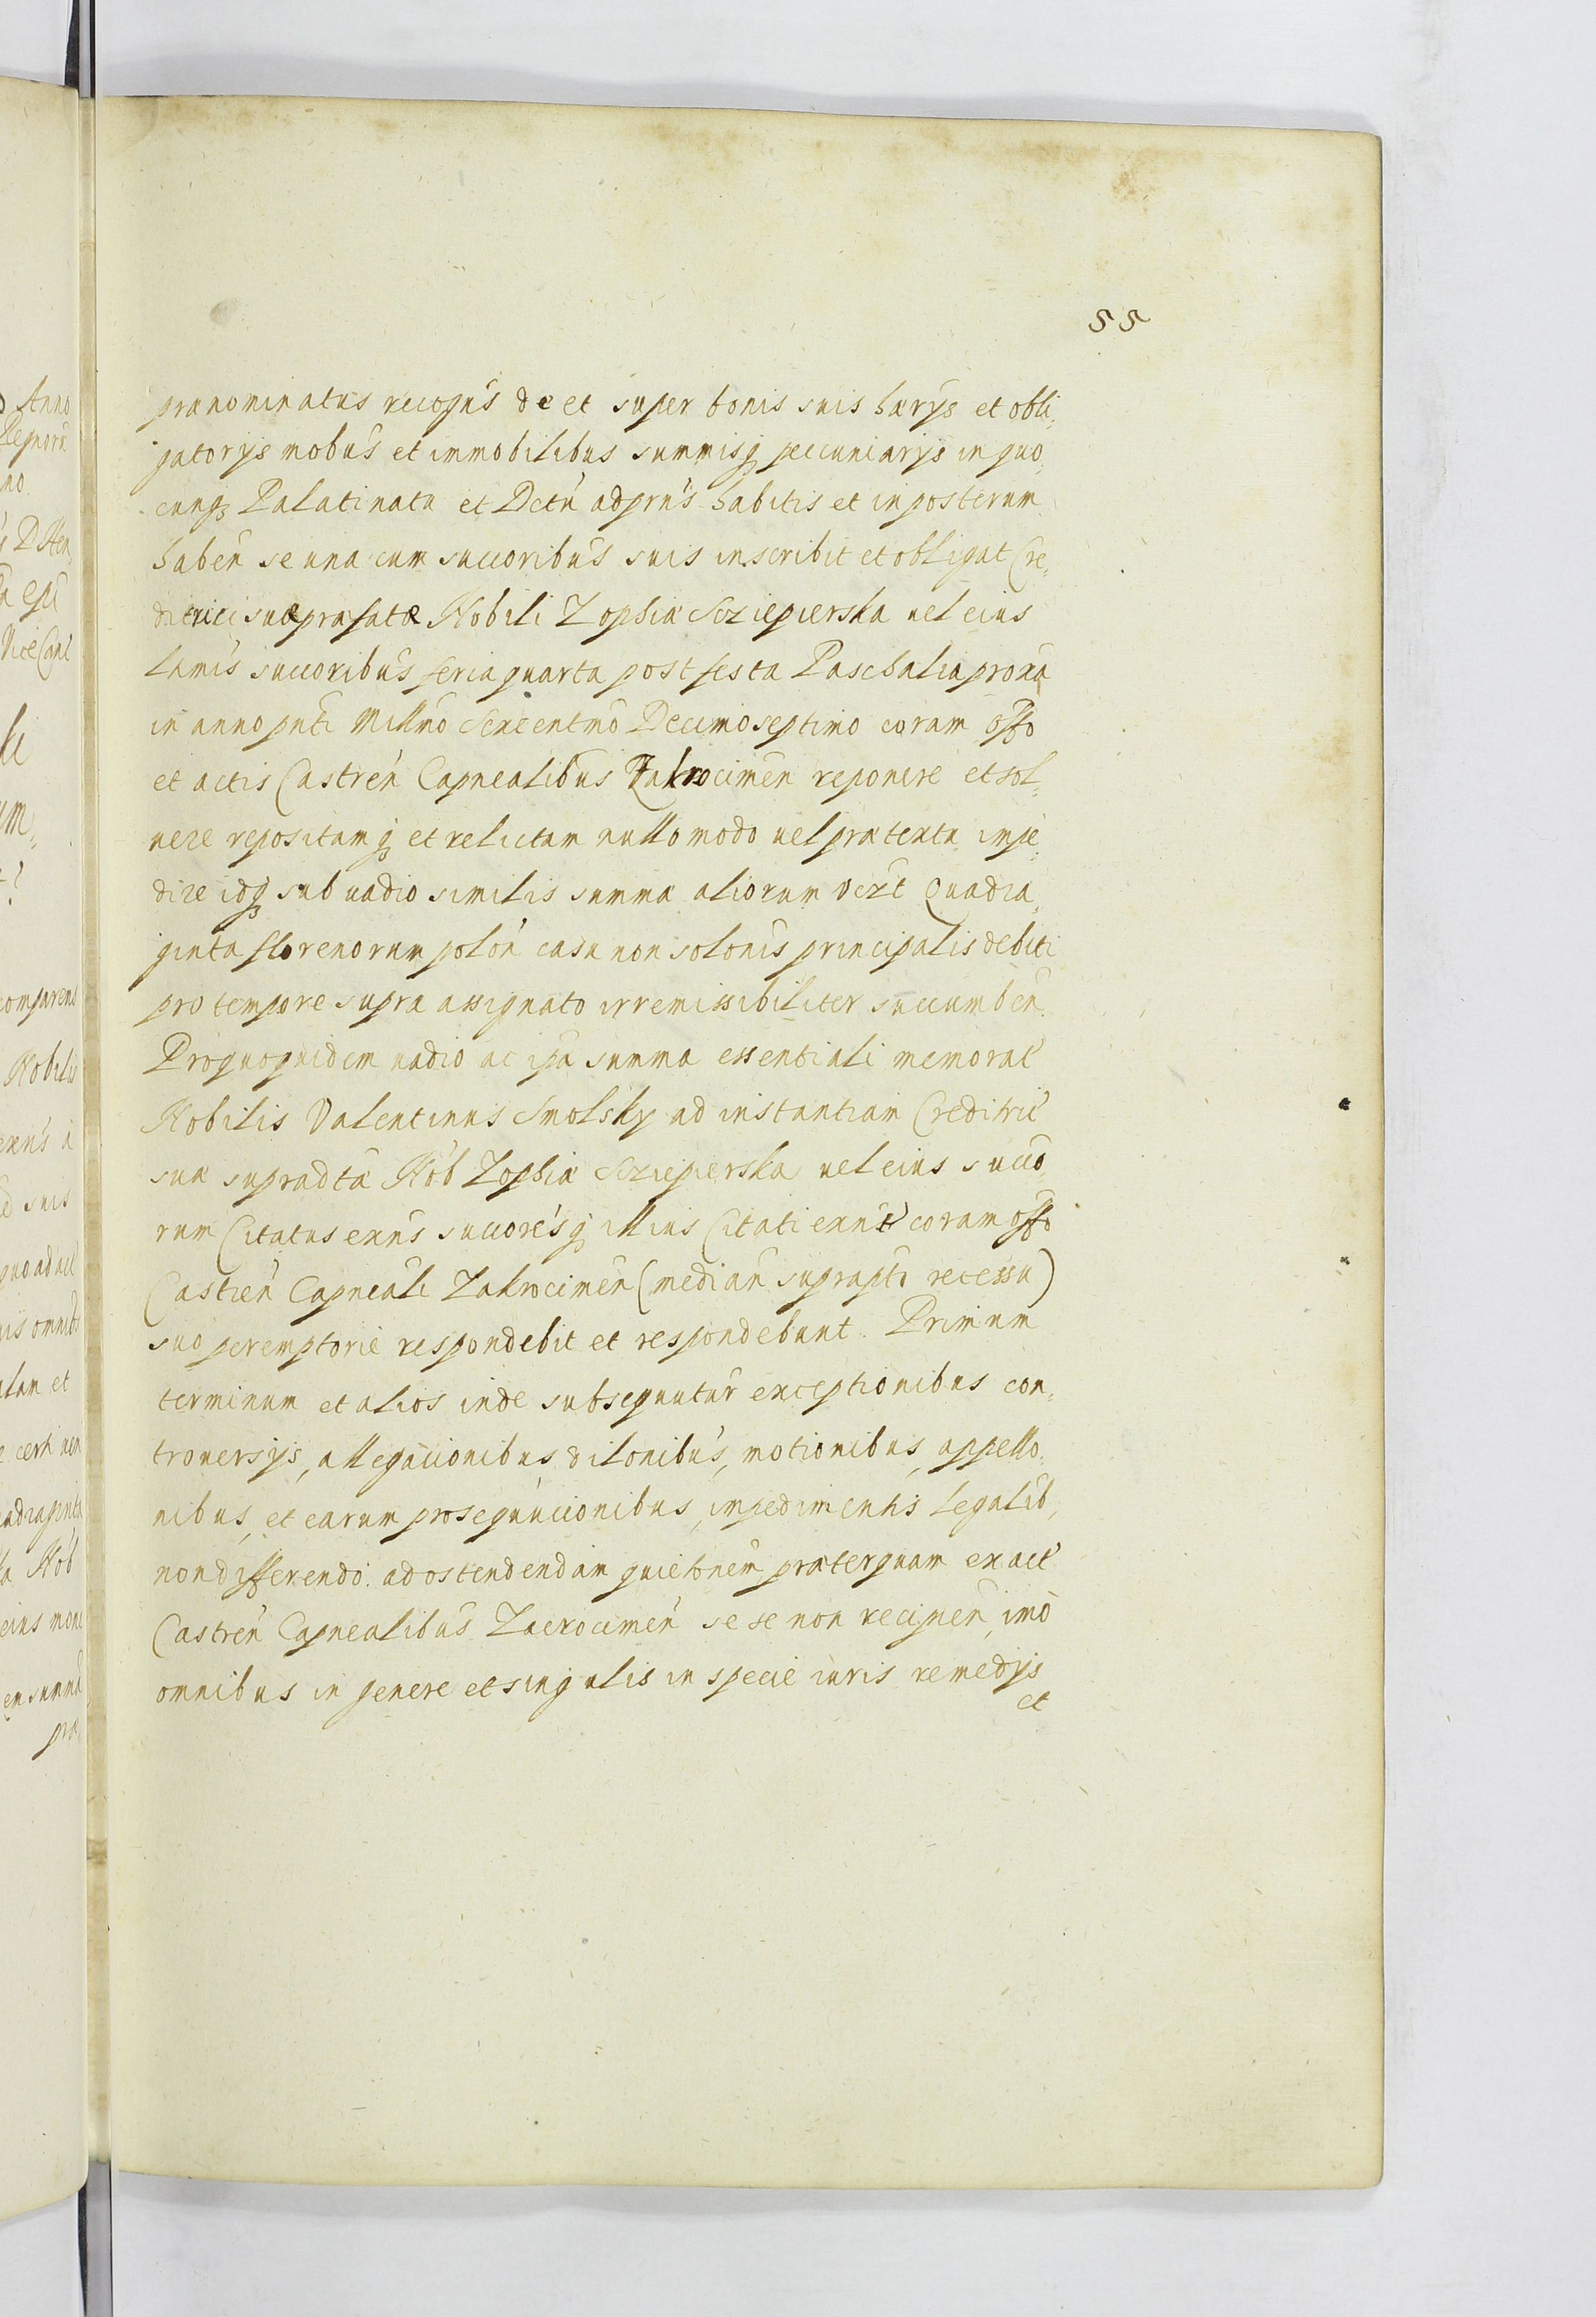 55
prænominatus recogn̄s de et super bonis suis hærys et obli,
gatorys mobūs et immobilibus summisq́ pecuniarys in quo,
cunq́ Palatinatu et Dctū adprn̄s habitis et in posterum
haben̄ se una cum succoribūs suis inscribit et obligat Cre,
ditrici suæ præfatæ Nobili Zophiæ Scziepierska uel eius
ltmīs succoribūs feria quarta post festa Paschalia proxa
in anno pnt̄i Millmō Sexcentmō Decimoseptimo coram offo
et actis Castren̄ Capnealibūs Zakrocimen̄ reponere et sol,
uere repositamq́ et relictam nullo modo uel prætextu impe,
dire idq́ sub uadio similis summæ aliorum Vert̄ Quadra,
ginta florenorum polon̄ casu non solonīs principalis debiti
pro tempore supra assignato irremissibiliter succumben̄.
Pro quo quidem uadio ac ipa summa essentiali memorat̄
Nobilis Valentinus Smolsky ad instantiam Creditric̄
suæ supradtæ Nob Zophiæ Scziepierska uel eius succo,
rum Citatus exn̄s succorēsq́ illius Citati exnt̄ coram offo
Castren̄ Capneāli Zakrocimen̄ (median̄ suprapto recessu)
suo peremptorie respondebit et respondebunt. Primum
terminum et alios inde subsequutur̄ exceptionibus con,
trouersÿs, allegationibus dilonibūs, motionibus, appello,
nibus, et earum prosequucionibus, impedimentis legalib,
non differendo. ad ostendendam quietonem præterquam ex act̄
Castren̄ Capnealibūs Zacrocimen̄ se se non recipien̄, imo
omnibus in genere et singulis in specie iuris remedÿs
et